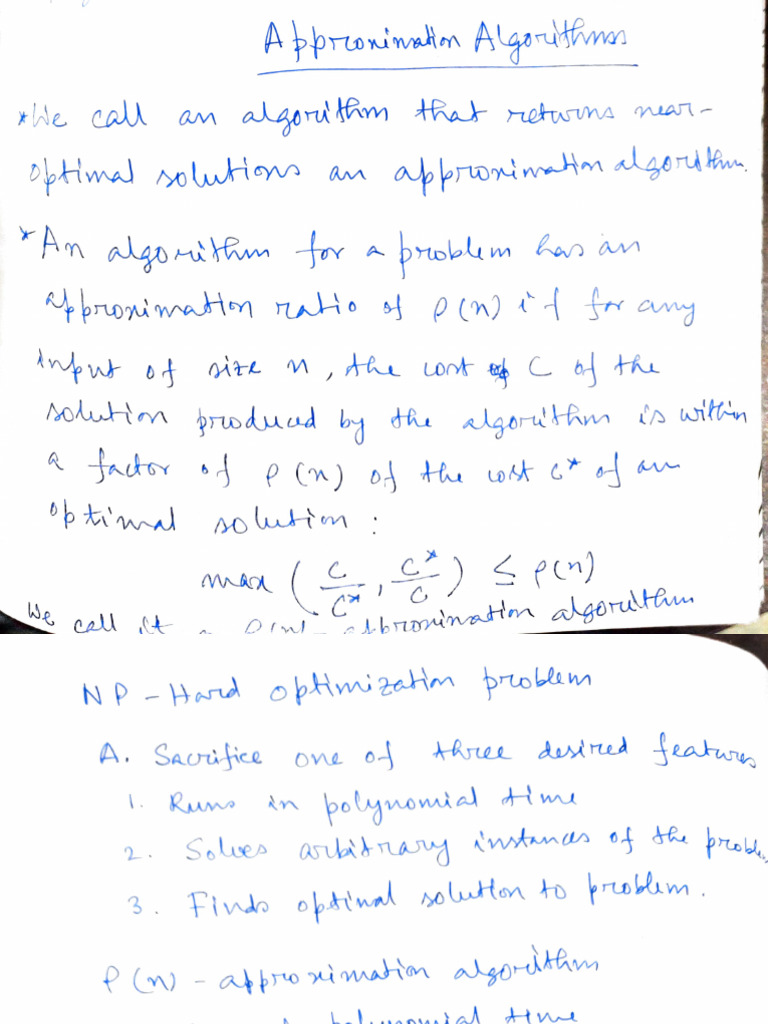 Approximation Algorithms
*We call an algorithm that returns near-
optimal solutions an approximation algorithm.
*An algorithm for a problem has an
approximation ratio of ρ(n) if for any
input of size n, the cost of C of the
solution produced by the algorithm is within
a factor of ρ(n) of the cost C* of an
optimal solution :
max ( C/C*, C*/C ) ≤ ρ(n)
We call it a ρ(n)-approximation algorithm
NP-Hard optimization problem
A. Sacrifice one of three desired features
1. Runs in polynomial time
2. Solves arbitrary instances of the problem
3. Finds optimal solution to problem.
ρ(n)-approximation algorithm
polynomial time